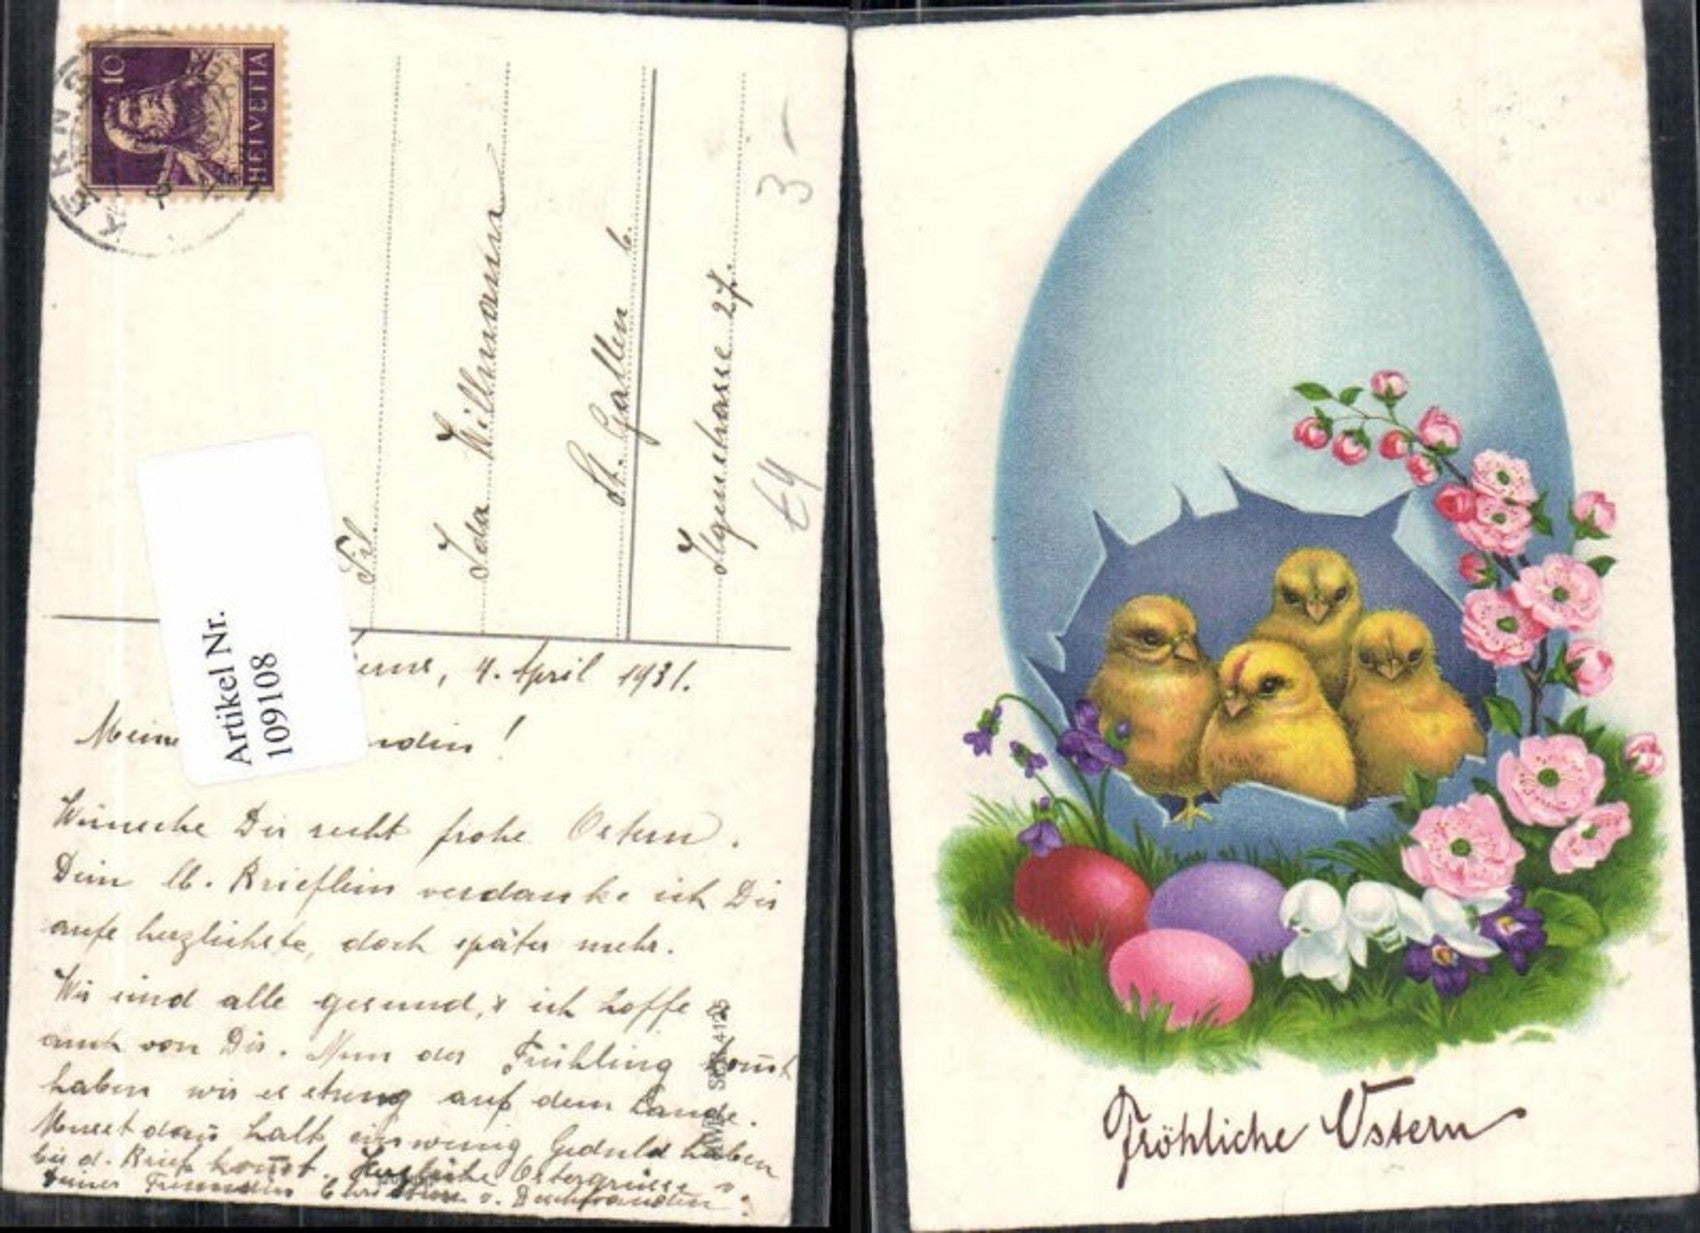 10
HELVETIA
KERNS
3 –
Frl.
Ida Hillmann
St. Gallen
Ilgenstrasse 27.
Artikel Nr.
109108
Kerns, 4. April 1931.
Meine
Wünsche Dir recht frohe Ostern.
Dein lb. Brieflein verdanke ich Dir
aufs herzlichste, doch später mehr.
Wir sind alle gesund, & ich hoffe es
auch von Dir. Nun der Frühling kom̄t
haben wir es streng auf dem Lande.
Musst dan̄ halt ein wenig Geduld haben
bis d. Brief kom̄t. Herzliche Ostergrüsse v.
Deiner Freundin Christina v. Deschwanden.
4125
Fröhliche Ostern